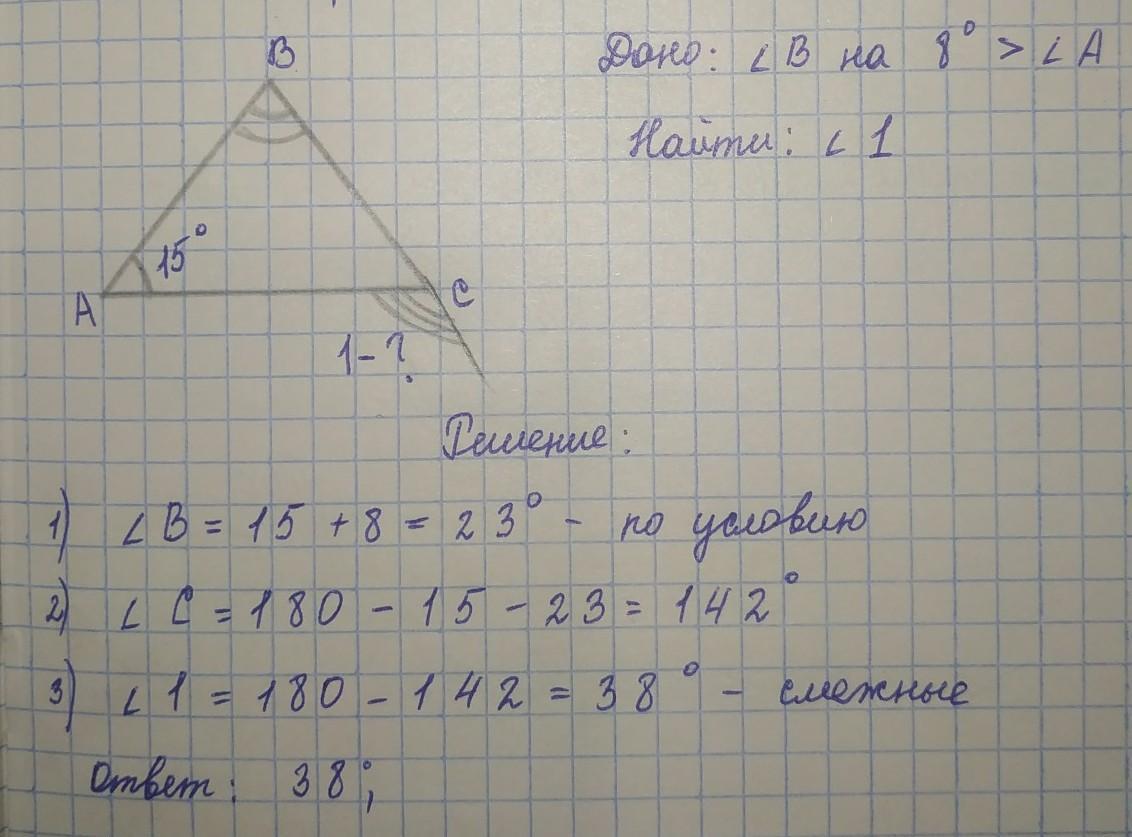 B
Дано: ∠B на 8° > ∠A
Найти: ∠1
15°
A
C
1-?
Решение:
1) ∠B = 15 + 8 = 23° - по условию
2) ∠C = 180 - 15 - 23 = 142°
3) ∠1 = 180 - 142 = 38° - смежные
Ответ: 38°;